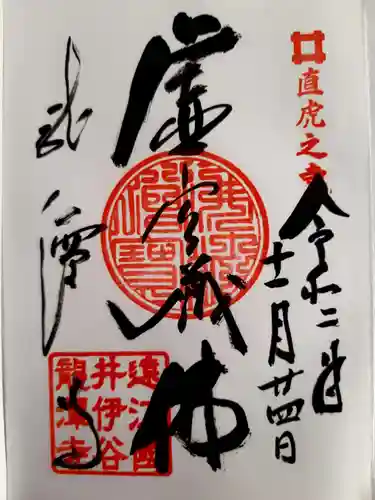 直虎之寺
令和二年
十一月廿四日
虚空蔵佛
龍潭寺
遠江國
井伊谷
龍潭寺